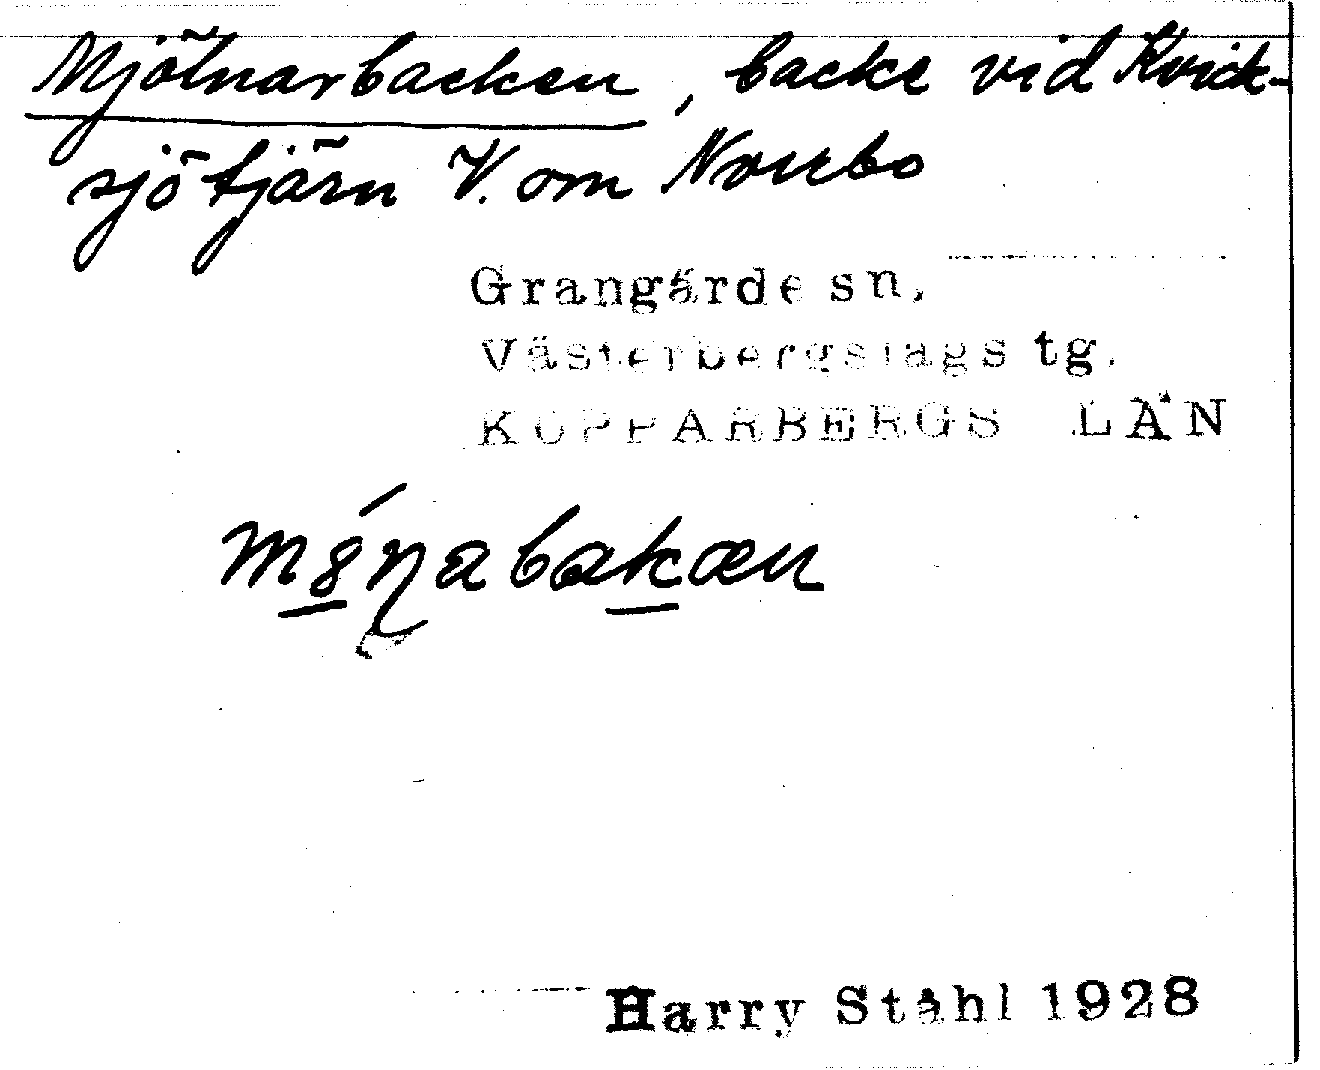 Mjölnarbacken, backe vid Kvick-
sjötjärn V. om Norrbo
Grangärde sn,
Västerbergslags tg.
KOPPARBERGS LÄN
Harry Ståhl 1928